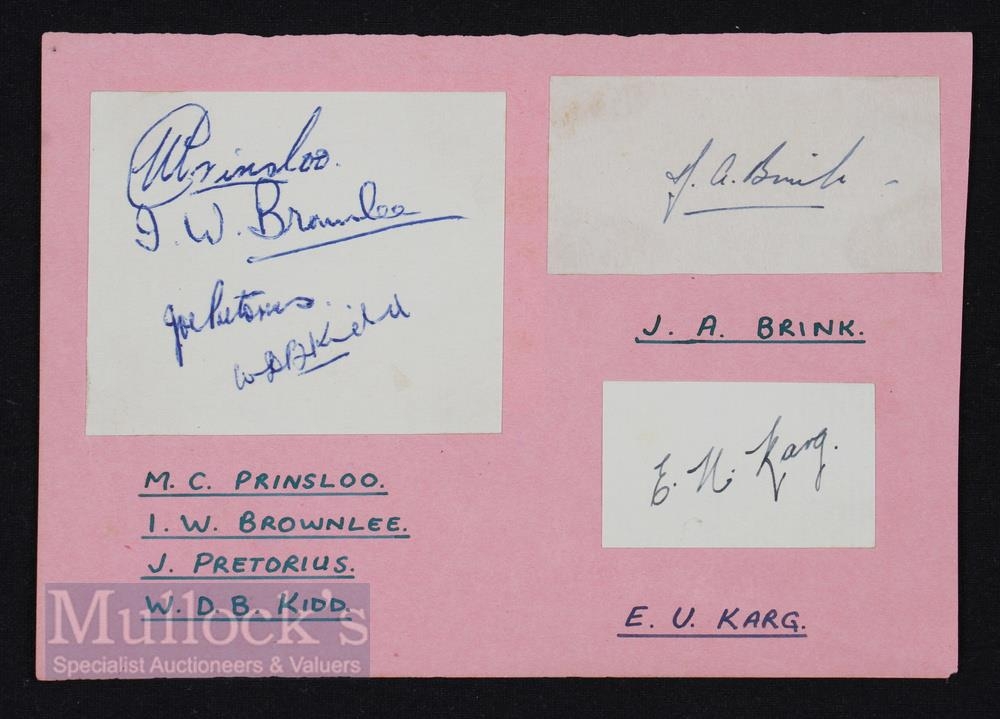 MC Prinsloo.
I. W. Brownlee
Joe Pretorius.
WDB Kidd
M. C. PRINSLOO.
I. W. BROWNLEE.
J. PRETORIUS.
W. D. B. KIDD.
J. A. Brink
J. A. BRINK.
E. U. Karg.
E. U. KARG.
Mullock's
Specialist Auctioneers & Valuers